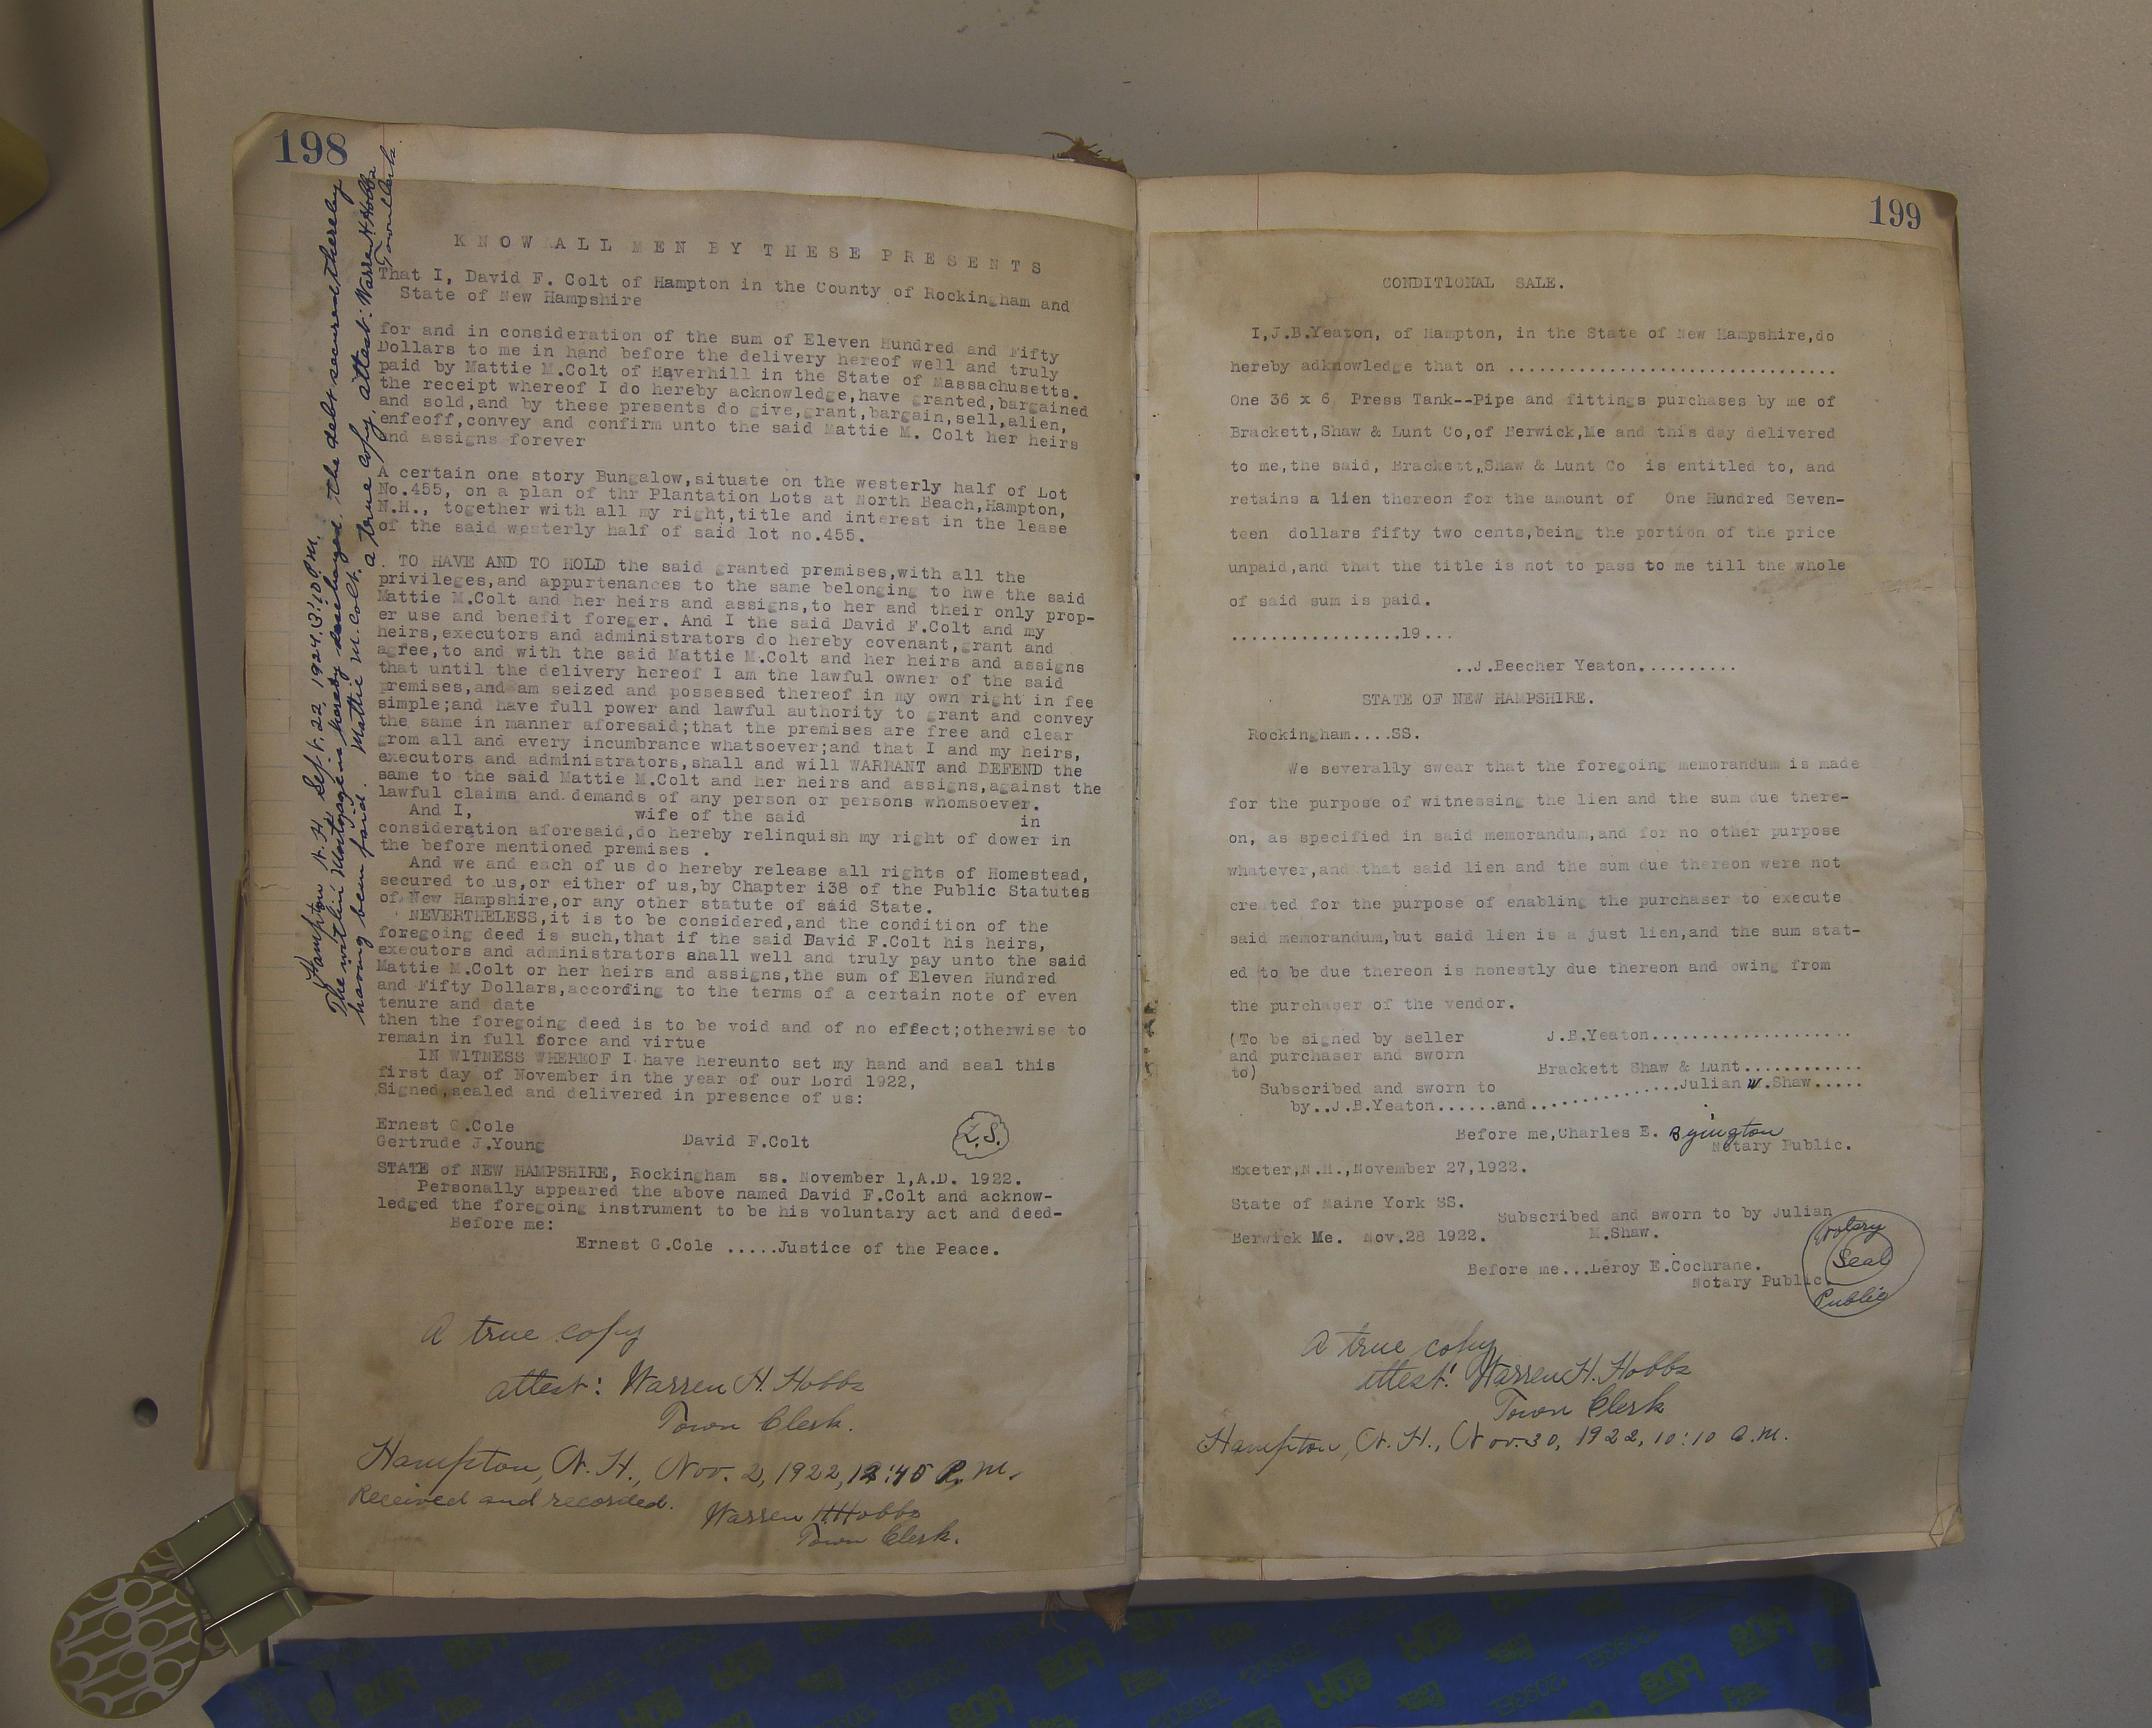 198
KNOW ALL MEN BY THESE PRESENTS
That I, David F. Colt of Hampton in the County of Rockingham and
State of New Hampshire
for and in consideration of the sum of Eleven Hundred and Fifty
Dollars to me in hand before the delivery hereof well and truly
paid by Mattie M.Colt of Haverhill in the State of Massachusetts.
the receipt whereof I do hereby acknowledge,have granted,bargained
and sold,and by these presents do give,grant,bargain,sell,alien,
enfeoff,convey and confirm unto the said Mattie M. Colt her heirs
and assigns forever
A certain one story Bungalow,situate on the westerly half of Lot
No.455, on a plan of thr Plantation Lots at North Beach,Hampton,
N.H., together with all my right,title and interest in the lease
of the said westerly half of said lot no.455.
. TO HAVE AND TO HOLD the said granted premises,with all the
privileges,and appurtenances to the same belonging to hwe the said
Mattie M.Colt and her heirs and assigns,to her and their only prop-
er use and benefit foreger. And I the said David F.Colt and my
heirs,executors and administrators do hereby covenant,grant and
agree,to and with the said Mattie M.Colt and her heirs and assigns
that until the delivery hereof I am the lawful owner of the said
premises,and am seized and possessed thereof in my own right in fee
simple;and have full power and lawful authority to grant and convey
the same in manner aforesaid;that the premises are free and clear
grom all and every incumbrance whatsoever;and that I and my heirs,
executors and administrators,shall and will WARRANT and DEFEND the
same to the said Mattie M.Colt and her heirs and assigns,against the
lawful claims and demands of any person or persons whomsoever.
And I, wife of the said in
consideration aforesaid,do hereby relinquish my right of dower in
the before mentioned premises .
And we and each of us do hereby release all rights of Homestead,
secured to us,or either of us,by Chapter i38 of the Public Statutes
of New Hampshire,or any other statute of said State.
NEVERTHELESS,it is to be considered,and the condition of the
foregoing deed is such,that if the said David F.Colt his heirs,
executors and administrators shall well and truly pay unto the said
Mattie M.Colt or her heirs and assigns,the sum of Eleven Hundred
and Fifty Dollars,according to the terms of a certain note of even
tenure and date
then the foregoing deed is to be void and of no effect;otherwise to
remain in full force and virtue
IN WITNESS WHEREOF I have hereunto set my hand and seal this
first day of November in the year of our Lord 1922,
Signed,sealed and delivered in presence of us:
Ernest G.Cole
Gertrude J.Young David F.Colt L.S.
STATE of NEW HAMPSHIRE, Rockingham ss. November 1,A.D. 1922.
Personally appeared the above named David F.Colt and acknow-
ledged the foregoing instrument to be his voluntary act and deed-
Before me:
Ernest G.Cole .....Justice of the Peace.
A true copy
attest: Warren H. Hobbs
Town Clerk.
Hampton, N. H., Nov. 2, 1922, 12:45 P. M.
Received and recorded.
Warren H. Hobbs
Town Clerk.
Hampton N. H. Sept. 22, 1924. 3:10 P.M.
The within Mortgage is hereby discharged. the debt secured thereby
having been paid. Mattie M. Colt. a true copy, attest: Warren H. Hobbs
Town Clerk.
199
CONDITIONAL SALE.
I,J.B.Yeaton, of Hampton, in the State of New Hampshire,do
hereby adknowledge that on ................................
One 36 x 6 Press Tank--Pipe and fittings purchases by me of
Brackett,Shaw & Lunt Co,of Berwick,Me and this day delivered
to me,the said, Brackett,Shaw & Lunt Co is entitled to, and
retains a lien thereon for the amount of One Hundred Seven-
teen dollars fifty two cents,being the portion of the price
unpaid,and that the title is not to pass to me till the whole
of said sum is paid.
.................19...
..J.Beecher Yeaton..........
STATE OF NEW HAMPSHIRE.
Rockingham....SS.
We severally swear that the foregoing memorandum is made
for the purpose of witnessing the lien and the sum due there-
on, as specified in said memorandum,and for no other purpose
whatever,and that said lien and the sum due thereon were not
created for the purpose of enabling the purchaser to execute
said memorandum,but said lien is a just lien,and the sum stat-
ed to be due thereon is honestly due thereon and owing from
the purchaser of the vendor.
(To be signed by seller J.B.Yeaton....................
and purchaser and sworn
to) Brackett Shaw & Lunt............
Subscribed and sworn to ....Julian W.Shaw.....
by..J.B.Yeaton......and............
Before me,Charles E. Byington
Notary Public.
Exeter,N.H.,November 27,1922.
State of Maine York SS.
Subscribed and sworn to by Julian
Berwick Me. Nov.28 1922. M.Shaw.
Before me...Leroy E.Cochrane.
Notary Public.
Notary
Seal
Public
A true copy
attest: Warren H. Hobbs
Town Clerk
Hampton, N. H., Nov. 30, 1922, 10:10 A.M.